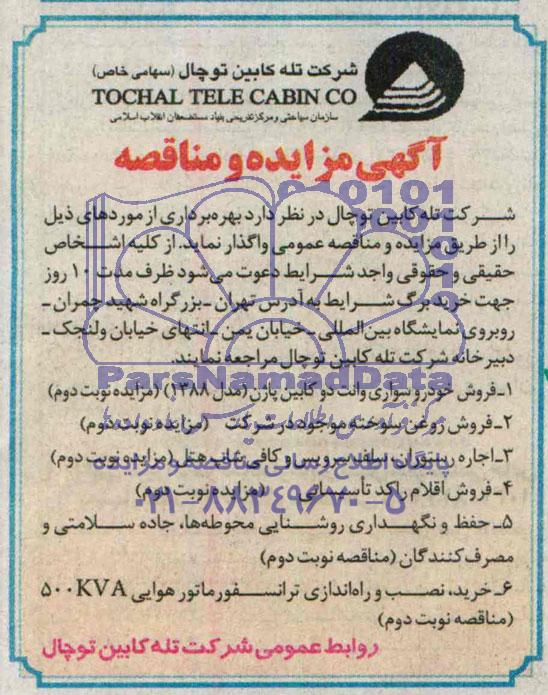 شرکت تله کابین توچال (سهامی خاص)
TOCHAL TELE CABIN CO
سازمان سیاحتی و مرکز تفریحی بنیاد مستضعفان انقلاب اسلامی
آگهی مزایده و مناقصه
شرکت تله کابین توچال در نظر دارد بهره‌برداری از موردهای ذیل
را از طریق مزایده و مناقصه عمومی واگذار نماید. از کلیه اشخاص
حقیقی و حقوقی واجد شرایط دعوت می‌شود ظرف مدت ۱۰ روز
جهت خرید برگ شرایط به آدرس تهران ـ بزرگراه شهید چمران ـ
روبروی نمایشگاه بین‌المللی ـ خیابان یمن ـ انتهای خیابان ولنجک ـ
دبیرخانه شرکت تله کابین توچال مراجعه نمایند.
۱ـ فروش خودرو سواری وانت دو کابین پاژن (مدل ۱۳۸۸) (مزایده نوبت دوم)
۲ـ فروش روغن سوخته موجود در شرکت (مزایده نوبت دوم)
۳ـ اجاره رستوران، سلف سرویس و کافی شاپ هتل (مزایده نوبت دوم)
۴ـ فروش اقلام راکد تأسیساتی (مزایده نوبت دوم)
۵ـ حفظ و نگهداری روشنایی محوطه‌ها، جاده سلامتی و
مصرف‌کنندگان (مناقصه نوبت دوم)
۶ـ خرید، نصب و راه‌اندازی ترانسفورماتور هوایی ۵۰۰KVA
(مناقصه نوبت دوم)
روابط عمومی شرکت تله کابین توچال
ParsNamadData
پایگاه اطلاع رسانی مناقصه و مزایده
۰۲۱-۸۸۳۴۹۶۷۰-۵